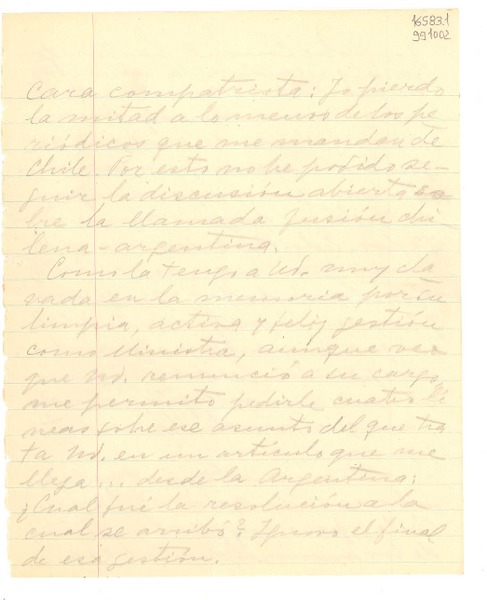 165831
991002
Cara compatriota: Yo pierdo
la mitad a lo menos de los pe
riódicos que me mandan de
Chile. Por esto no he podido se-
guir la discusión abierta so
bre la llamada fusión chi
lena-argentina.
Como la tengo a Ud. muy cla
vada en la memoria por su
limpia, activa y feliz gestión
como Ministra, aunque veo
que Ud. renunció a su cargo,
me permito pedirle cuatro lí
neas sobre ese asunto del que tra
ta Ud. en un artículo que me
llega... desde la Argentina:
¿Cual fué la resolución a la
cual se arribó? Ignoro el final
de esa gestión.